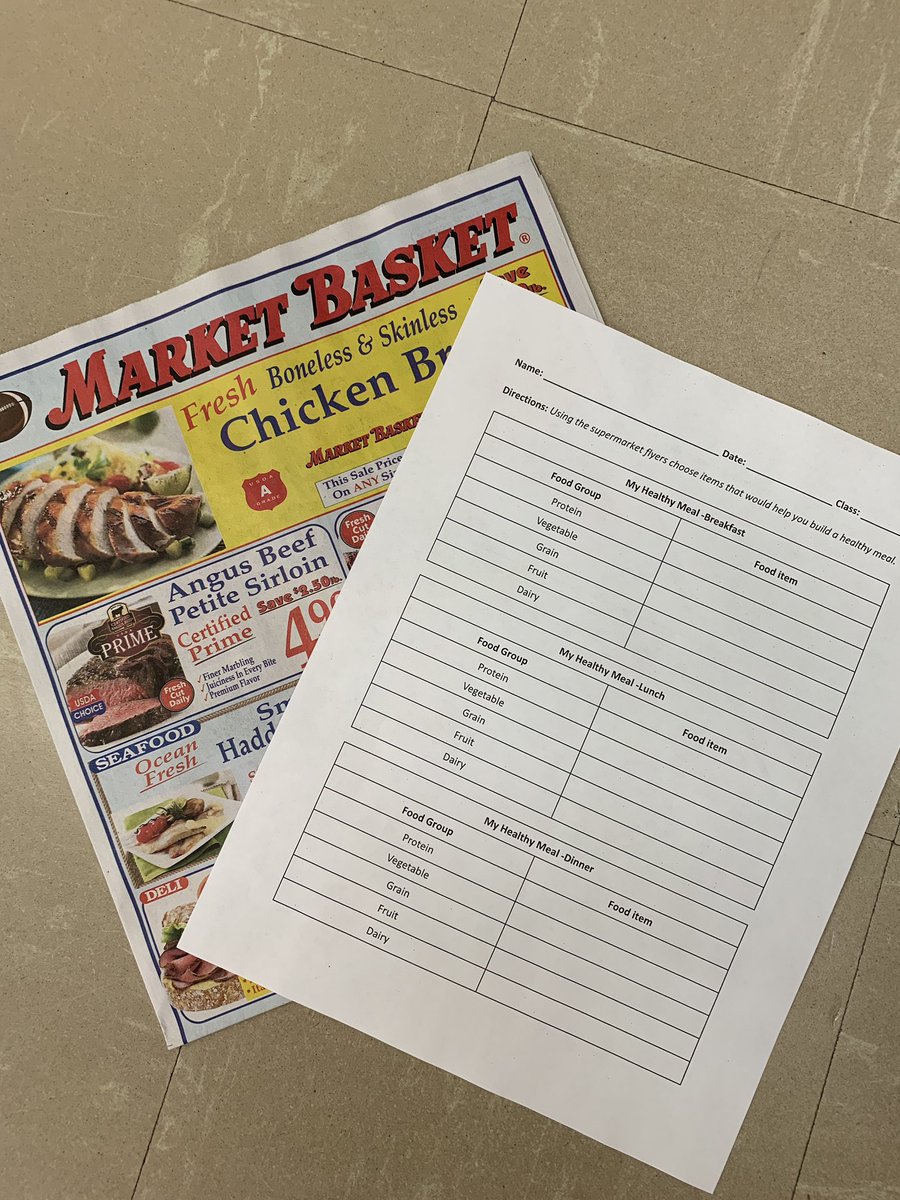 MARKET BASKET®
Fresh Boneless & Skinless
Chicken
MARKET BASKET
USDA
A
GRADE
This Sale Price
On ANY
Fresh
Cut
Daily
Angus Beef
Petite Sirloin
Save $2.50 lb.
Certified
Prime
PRIME
✓ Finer Marbling
✓ Juiciness In Every Bite
✓ Premium Flavor
USDA
CHOICE
Fresh
Cut
Daily
SEAFOOD
Ocean
Fresh
DELI
Name:
Date:
Class:
Directions: Using the supermarket flyers choose items that would help you build a healthy meal.
My Healthy Meal -Breakfast
Food Group Food item
Protein
Vegetable
Grain
Fruit
Dairy
My Healthy Meal -Lunch
Food Group Food item
Protein
Vegetable
Grain
Fruit
Dairy
My Healthy Meal -Dinner
Food Group Food item
Protein
Vegetable
Grain
Fruit
Dairy